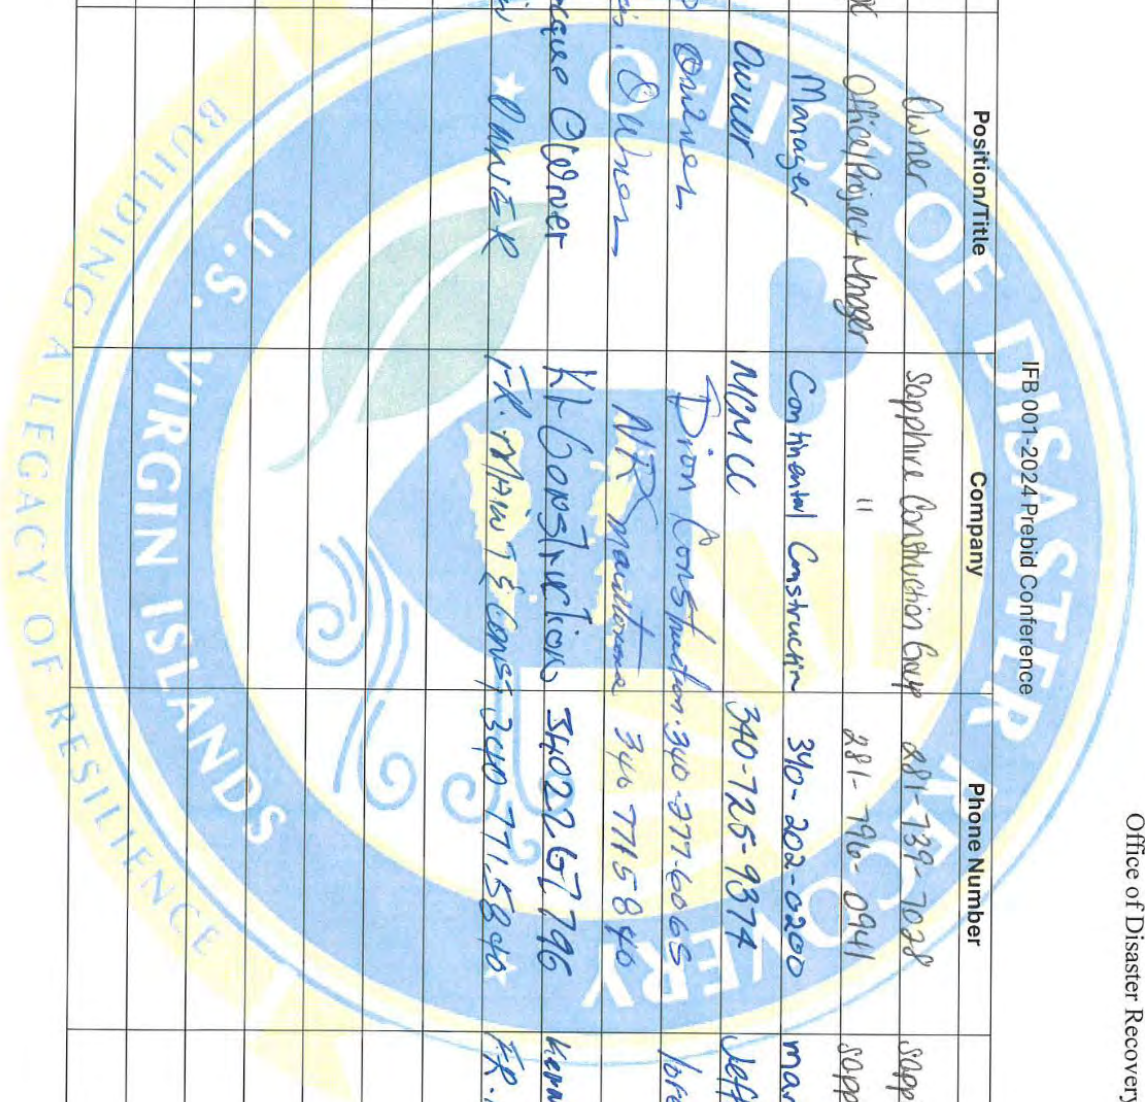 Office of Disaster Recovery
IFB 001-2024 Prebid Conference
Position/Title Company Phone Number
Owner Sapphire Construction Group 281-739-7028 sapp
Office/Project Manager " 281-796-0941 sapp
Manager Continental Construction 340-202-0200 mar
Owner MCM LLC 340-725-9374 Jeff
Owner Dion Construction. 340-277-6065 lore
Owner NR 340 7715840
Owner Kt Construction 3402267796
OWNER FR. MAINT & Const, 340 771.5840 FR.
OFFICE OF DISASTER RECOVERY
U.S. VIRGIN ISLANDS
BUILDING A LEGACY OF RESILIENCE